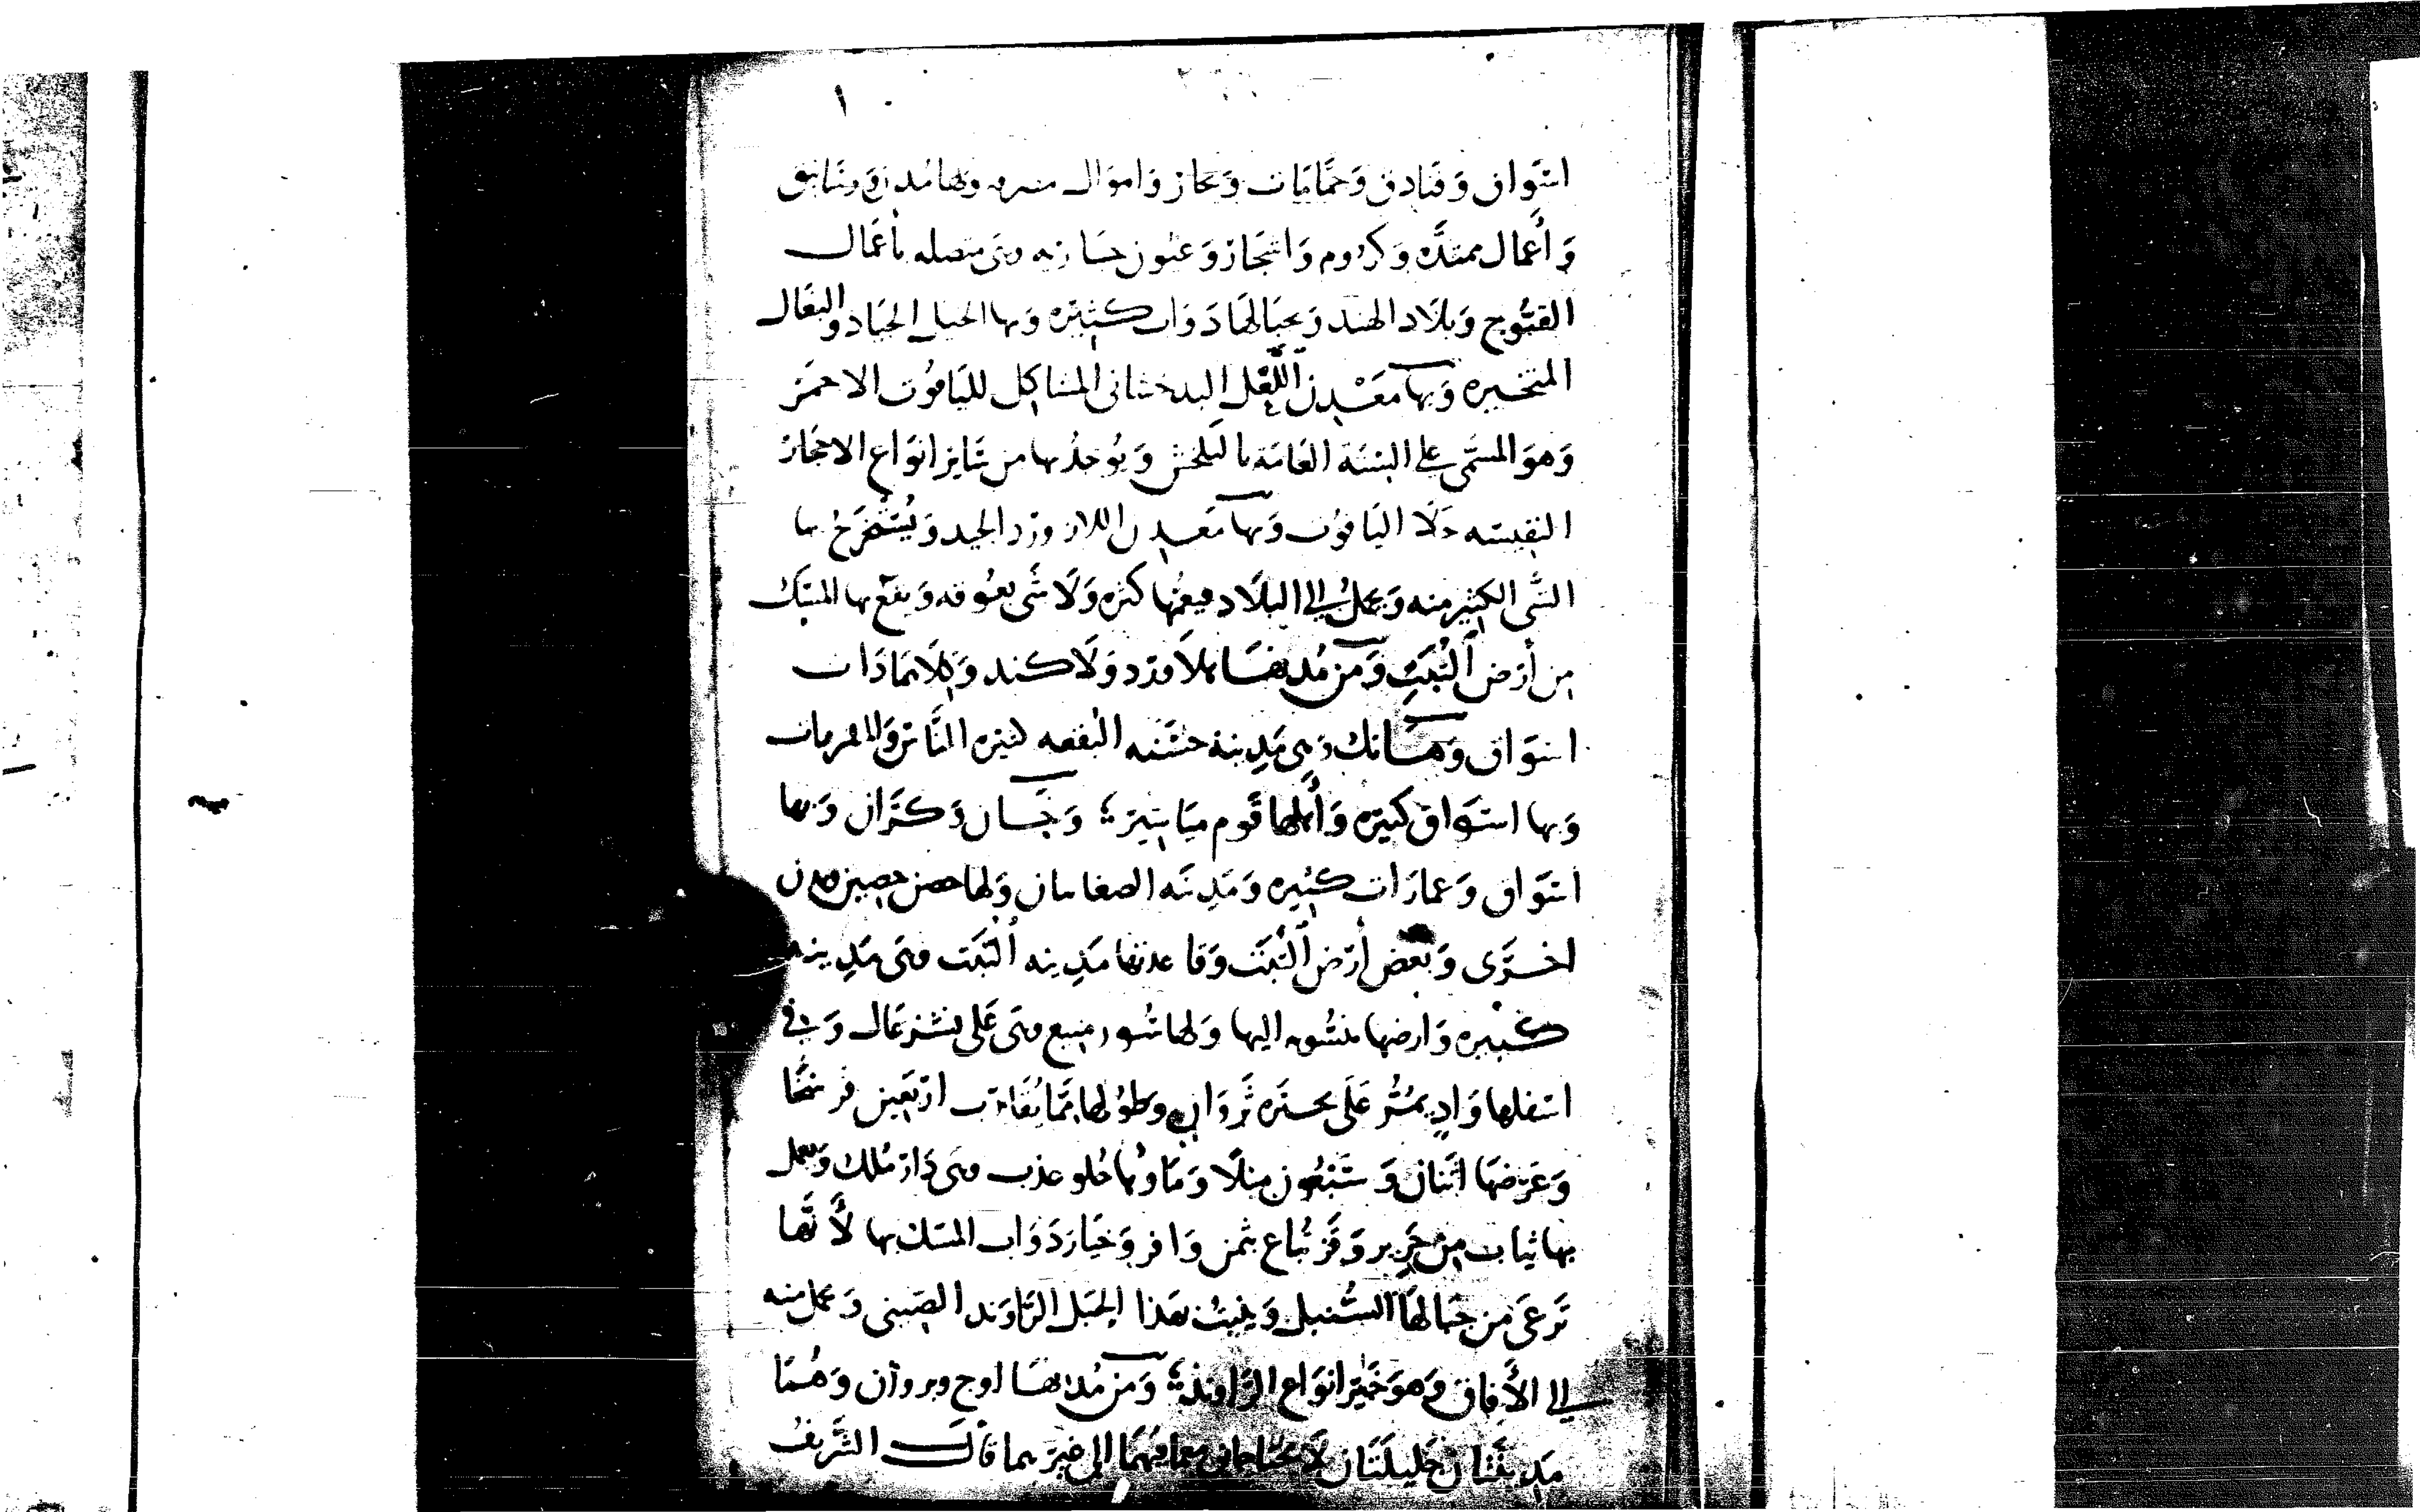 اسواق وفنادق وحمامات وتجار واموال ولها مدن ورساتيق
وأعمال ممتده وكروم واشجار وعيون جاريه وهي متصله بأعمال
القنوج وبلاد الهند وبجبالها دواب كثيره وبها الخيل الجياد والبغال
المتخيره وبها معدن اللعل البدخشاني المشاكل للياقوت الاحمر
وهو المسمى على السنة العامه بالبلخش ويوجد بها من سائر انواع الاحجار
النفيسه خلا الياقوت وبها معدن اللازورد الجيد ويستخرج بها
الشي الكثير منه ويحمل الى البلاد فيعمها كثره ولا شي يفوقه ويقع بها المسك
من أرض التبت ومن مدنها ولاكند وبلاسمادات
اسواق وهي مدينة حسنه البقعه كثيره
وبها اسواق كبيره وأهلها قوم مياسير وكران وبها
اسواق وعمارات كثيره ومدينه ولها حصن حصين ومدن
اخرى وبعض أرض التبت وقاعدتها مدينه التبت وهي مدينه
كبيره وارضها منسوبه اليها ولها سور منيع وهي على نشز عال وفي
اسفلها واد يمر على بحيره بروان وطولها مما يقارب اربعين فرسخا
وعرضها اثنان وسبعون ميلا وماوها حلو عذب وهي دار ملك ويعمل
بها ثياب من حرير وقز تباع بثمن وافر وخيار دواب المسك بها لأنها
ترعى من جبالها السنبل وينبت بهذا الجبل الراوند الصيني ويحمل منه
الى الأفاق وهو خير انواع الراوند ومن مدنها اوج وبروان وهما
مدينتان جليلتان لا يحتاجان معا فيهما الى غيرهما قال الشريف